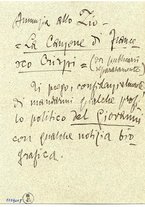 Annunzia allo Zio
"La Canzone di Fran
cesco Crispi" (
separatamente)
Ti prego, confidenzialmente
di mandarmi qualche pro
lo politico del Giovanni
con qualche notizia bio
grafica.